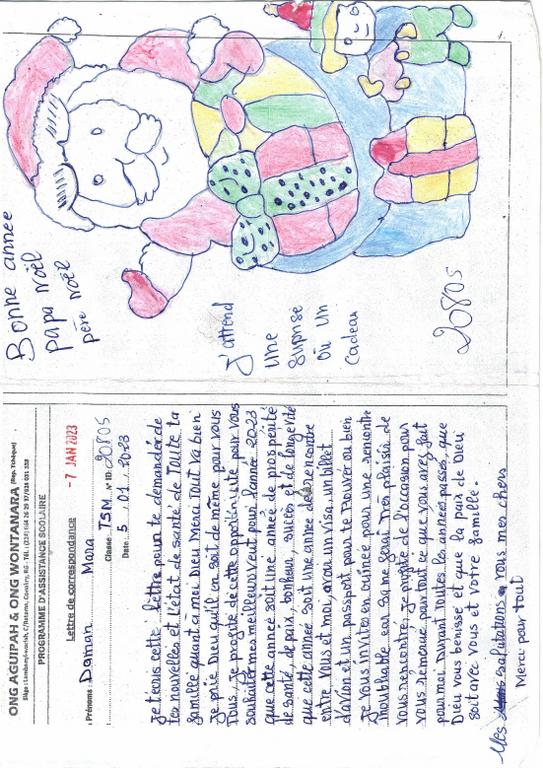 ONG AGUIPAH & ONG WONTANARA (Rep. Tchèque)
PROGRAMME D'ASSISTANCE SCOLAIRE
Lettre de correspondance
- 7 JAN 2023
Prénoms : Daman Mara
Classe : TSM N° ID : 20805
Date : 5 . 01 . 2023
je t'écris cette lettre pour te demander de
tes nouvelles et l'état de santé de Toute ta
famille quant à moi Dieu Merci Tout va bien
je prie Dieu qu'il en soit de même pour vous
Tous, je profite de cette opportunité pour vous
souhaiter mes meilleurs vœux pour l'année 2023
que cette année soit une année de prospérité
de santé, de paix, bonheur, succès et de longévité
que cette année soit une année de rencontre
entre vous et moi, avoir un visa, un billet
d'avion et un passport pour te Trouver ou bien
je vous invites en Guinée pour une rencontre
inoubliable car sa me serai très plaisir de
vous rencontre, je profite de l'occasion pour
vous remercié pour tout ce que vous avez fait
pour moi durant Toutes les années passés, que
Dieu vous bénisse et que la paix de Dieu
soit avec vous et votre famille.
Mes salutations a vous mes chers
Merci pour tout
Bonne annee
papa noël
père noël
J'attend
une
suprise
ou un
cadeau
20805